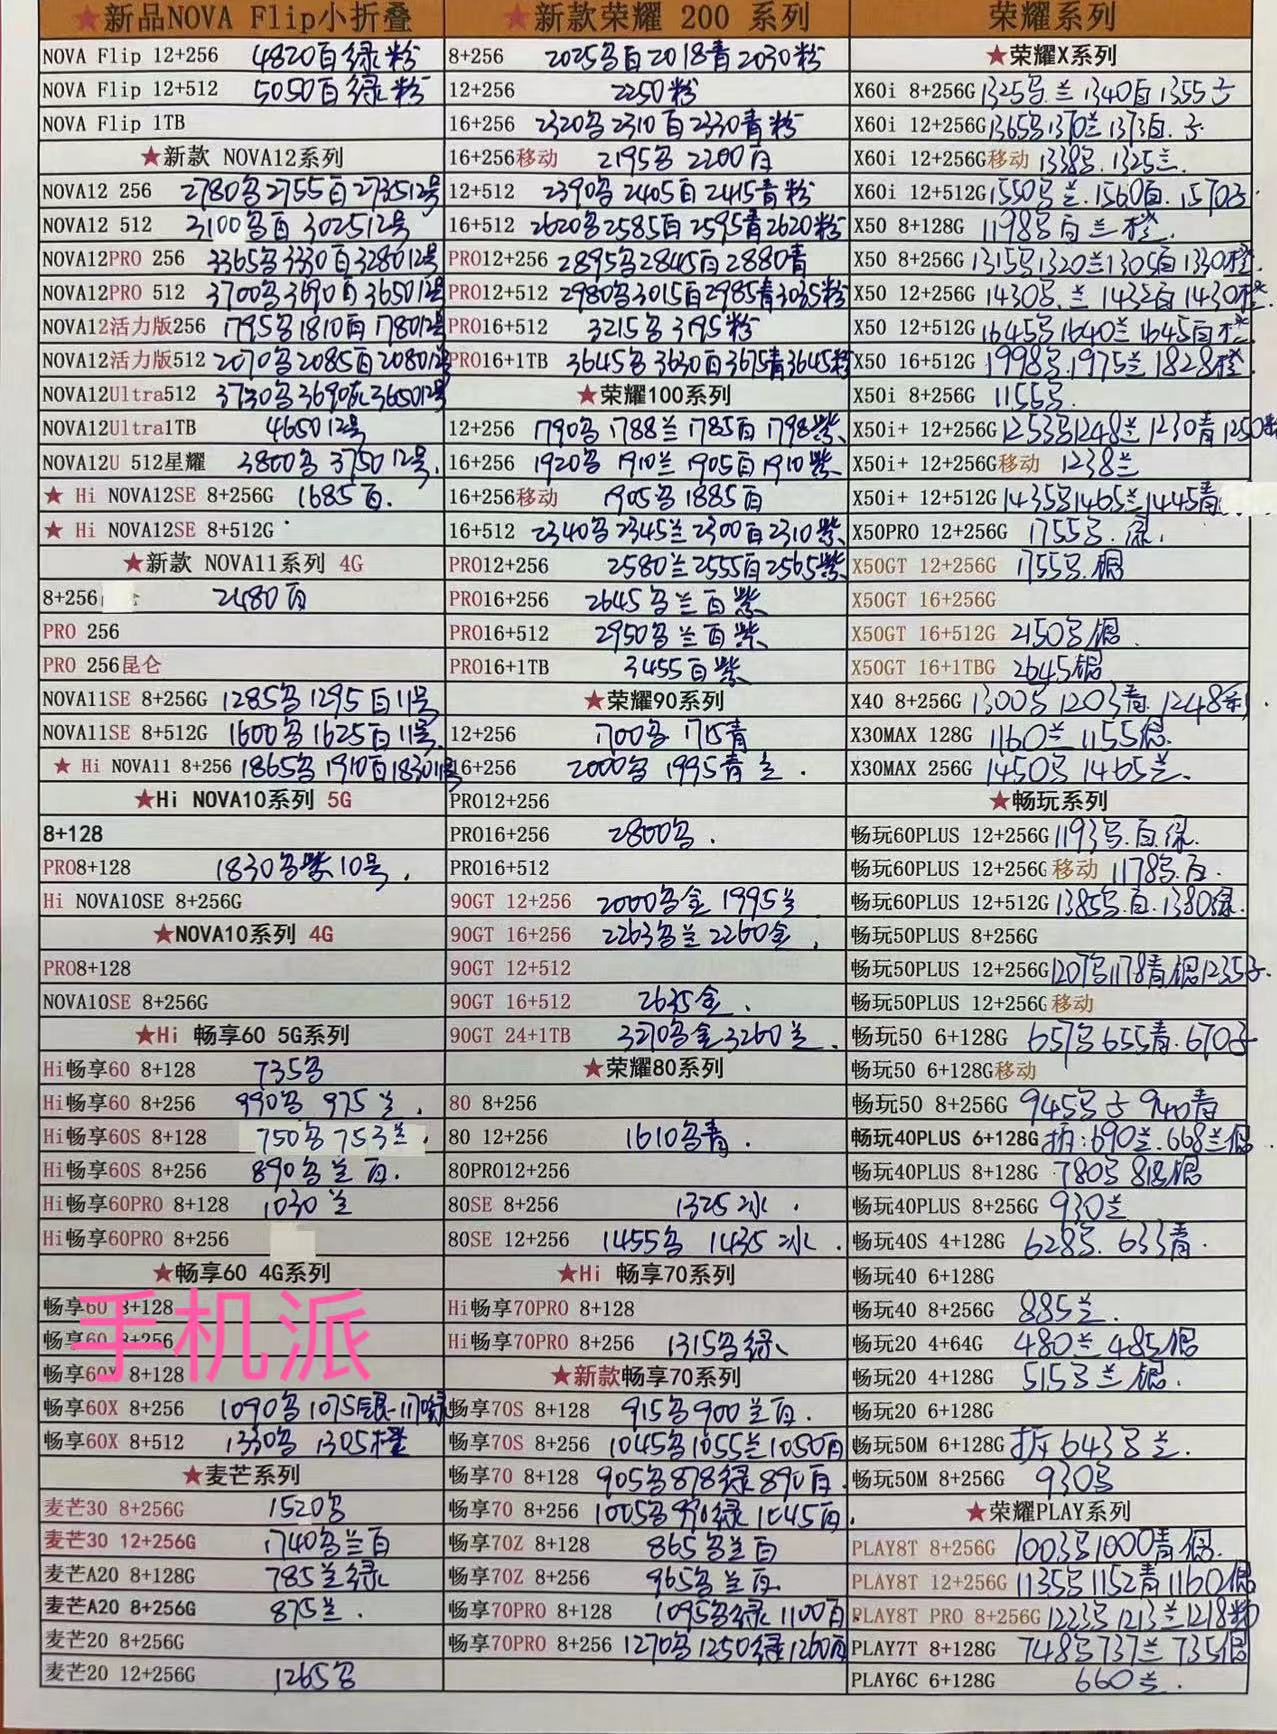 ★新品NOVA Flip小折叠
NOVA Flip 12+256 4820白绿粉
NOVA Flip 12+512 5050白绿粉
NOVA Flip 1TB
★新款 NOVA12系列
NOVA12 256 2780 2755白 2735 12号
NOVA12 512 3100白 3025 12号
NOVA12PRO 256 3365 3330白 3280 12号
NOVA12PRO 512 3700 3690白 3650 12号
NOVA12活力版256 1795 1810白 1780 12号
NOVA12活力版512 2070 2085白 2080 12号
NOVA12Ultra512 3730 3690灰 3650 12号
NOVA12Ultra1TB 4650 12号
NOVA12U 512星耀 3800 3750 12号.
★ Hi NOVA12SE 8+256G 1685白.
★ Hi NOVA12SE 8+512G
★新款 NOVA11系列 4G
8+256 2480白
PRO 256
PRO 256昆仑
NOVA11SE 8+256G 1285 1295白 11号
NOVA11SE 8+512G 1600 1625白 11号.
★ Hi NOVA11 8+256 1865 1910白 1830 11号
★Hi NOVA10系列 5G
8+128
PRO8+128 1830紫 10号.
Hi NOVA10SE 8+256G
★NOVA10系列 4G
PRO8+128
NOVA10SE 8+256G
★Hi 畅享60 5G系列
Hi畅享60 8+128 735
Hi畅享60 8+256 990 975兰.
Hi畅享60S 8+128 750 753兰.
Hi畅享60S 8+256 890兰白.
Hi畅享60PRO 8+128 1030兰
Hi畅享60PRO 8+256
★畅享60 4G系列
畅享60 8+128
畅享60 8+256
手机派
畅享60X 8+128
畅享60X 8+256 1090 1075银
畅享60X 8+512 1330 1305橙
★麦芒系列
麦芒30 8+256G 1520
麦芒30 12+256G 1740兰白
麦芒A20 8+128G 785兰绿
麦芒A20 8+256G 875兰.
麦芒20 8+256G
麦芒20 12+256G 1265
★新款荣耀 200 系列
8+256 2025白 2018青 2030粉
12+256 2250粉
16+256 2320 2310白 2330青粉
16+256移动 2195 2200白
12+512 2390 2405白 2415青粉
16+512 2620 2585白 2595青 2620粉
PRO12+256 2895 2845白 2880青
PRO12+512 2980 3015白 2985青 3035粉
PRO16+512 3215 3195粉
PRO16+1TB 3645 3630白 3675青 3645粉
★荣耀100系列
12+256 1790 1788兰 1785白 1798紫
16+256 1920 1910兰 1905白 1910紫
16+256移动 1905 1885白
16+512 2340 2345兰 2300白 2310紫
PRO12+256 2580兰 2555白 2565紫
PRO16+256 2645兰白紫
PRO16+512 2950兰白紫
PRO16+1TB 3455白紫
★荣耀90系列
12+256 1700 1715青
16+256 2000 1995青兰.
PRO12+256
PRO16+256 2800.
PRO16+512
90GT 12+256 2000金 1995兰
90GT 16+256 2263兰 2260金.
90GT 12+512
90GT 16+512 2635金.
90GT 24+1TB 3270金 3260兰.
★荣耀80系列
80 8+256
80 12+256 1610青.
80PRO12+256
80SE 8+256 1325冰.
80SE 12+256 1455 1435冰.
★Hi 畅享70系列
Hi畅享70PRO 8+128
Hi畅享70PRO 8+256 1315绿
★新款畅享70系列
畅享70S 8+128 915 900兰白.
畅享70S 8+256 1045 1055兰 1050白
畅享70 8+128 905 878绿 890白.
畅享70 8+256 1005 990绿 1045白.
畅享70Z 8+128 865兰白
畅享70Z 8+256 965兰白
畅享70PRO 8+128 1095绿 1100白.
畅享70PRO 8+256 1270 1250绿 1260白
荣耀系列
★荣耀X系列
X60i 8+256G 1325兰 1340白 1355
X60i 12+256G 1365 1370兰 1373白.
X60i 12+256G移动 1338. 1325兰.
X60i 12+512G 1550兰. 1560白. 1570
X50 8+128G 1198白兰橙.
X50 8+256G 1315 1320兰 1305白 1330橙.
X50 12+256G 1430.兰 1432白 1430橙.
X50 12+512G 1645 1640兰 1645白橙
X50 16+512G 1998 1975兰 1828橙.
X50i 8+256G 1155
X50i+ 12+256G 1253 1248兰 1230青 1250粉
X50i+ 12+256G移动 1238兰
X50i+ 12+512G 1435 1465兰 1445青
X50PRO 12+256G 1755.绿.
X50GT 12+256G 1755.银
X50GT 16+256G
X50GT 16+512G 2150银.
X50GT 16+1TBG 2645银
X40 8+256G 1300 1203青. 1248
X30MAX 128G 1160兰 1155银.
X30MAX 256G 1450 1465兰.
★畅玩系列
畅玩60PLUS 12+256G 1193.白.绿.
畅玩60PLUS 12+256G移动 1178.白.
畅玩60PLUS 12+512G 1385.白. 1380绿.
畅玩50PLUS 8+256G
畅玩50PLUS 12+256G 1207 1178青.银 1235
畅玩50PLUS 12+256G移动
畅玩50 6+128G 657 655青. 670
畅玩50 6+128G移动
畅玩50 8+256G 945 940青
畅玩40PLUS 6+128G 拆:690兰. 668兰银
畅玩40PLUS 8+128G 780 818银
畅玩40PLUS 8+256G 930兰
畅玩40S 4+128G 628. 633青.
畅玩40 6+128G
畅玩40 8+256G 885兰.
畅玩20 4+64G 480兰 485银
畅玩20 4+128G 515兰银.
畅玩20 6+128G
畅玩50M 6+128G 拆 643兰.
畅玩50M 8+256G 930
★荣耀PLAY系列
PLAY8T 8+256G 1003 1000青银.
PLAY8T 12+256G 1135 1152青 1160银
PLAY8T PRO 8+256G 1223 1213兰 1218粉
PLAY7T 8+128G 748 737兰 735银
PLAY6C 6+128G 660兰.